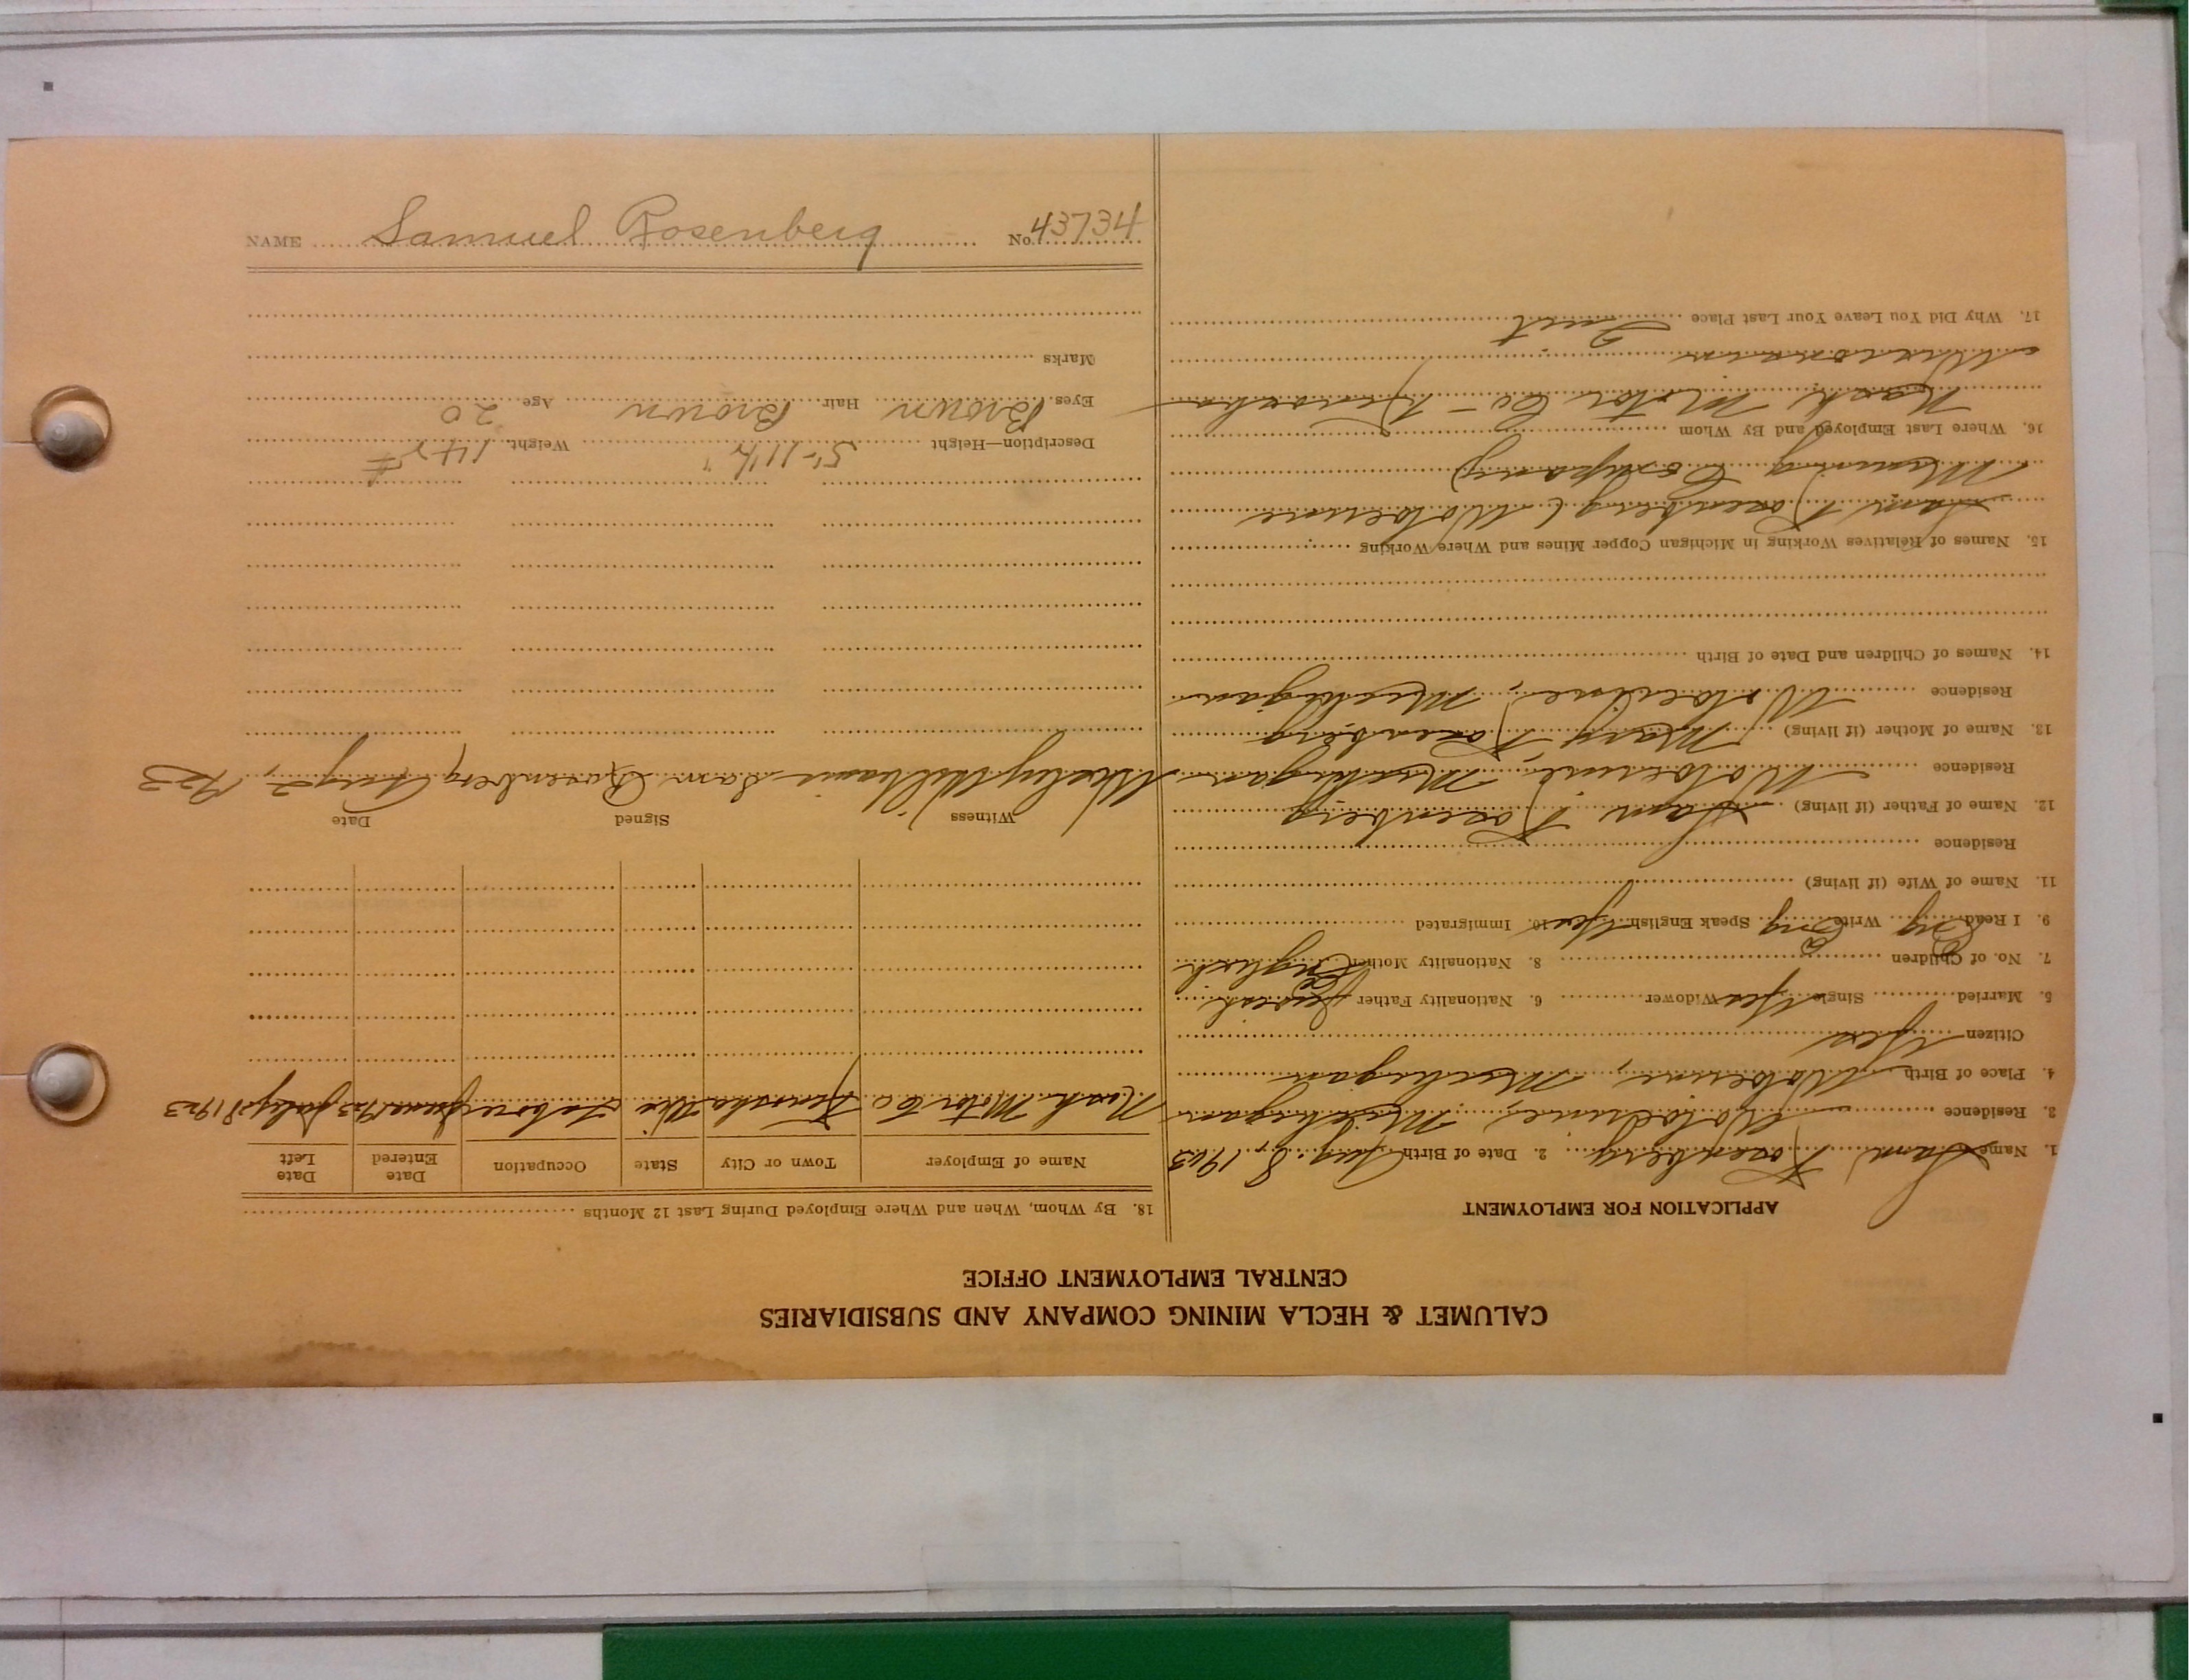 CALUMET & HECLA MINING COMPANY AND SUBSIDIARIES
CENTRAL EMPLOYMENT OFFICE
APPLICATION FOR EMPLOYMENT
1. Name Sam Rosenberg 2. Date of Birth Aug. 8, 1903
3. Residence Wolverine, Michigan
4. Place of Birth Wolverine, Michigan
Citizen Yes
5. Married Single Yes Widower 6. Nationality Father
7. No. of Children 8. Nationality Mother English
9. I Read Eng Write Eng Speak English Yes 10. Immigrated
11. Name of Wife (if living)
Residence
12. Name of Father (if living) Sam Rosenberg
Residence Wolverine, Michigan
13. Name of Mother (if living) Mary Rosenberg
Residence Wolverine, Michigan
14. Names of Children and Date of Birth
15. Names of Relatives Working in Michigan Copper Mines and Where Working
Sam Rosenberg (Wolverine
Mining Company)
16. Where Last Employed and By Whom
Nash Motor Co - Kenosha
Wisconsin
17. Why Did You Leave Your Last Place Quit
18. By Whom, When and Where Employed During Last 12 Months
Name of Employer Town or City State Occupation Date Entered Date Left
Nash Motor Co Kenosha Wis Laborer June 1923 July 28 1923
Witness Signed Date
Wesley Williams Sam Rosenberg Aug 2, 1923
Description—Height 5'-11½" Weight 145#
Eyes Brown Hair Brown Age 20
Marks
NAME Samuel Rosenberg No. 43734